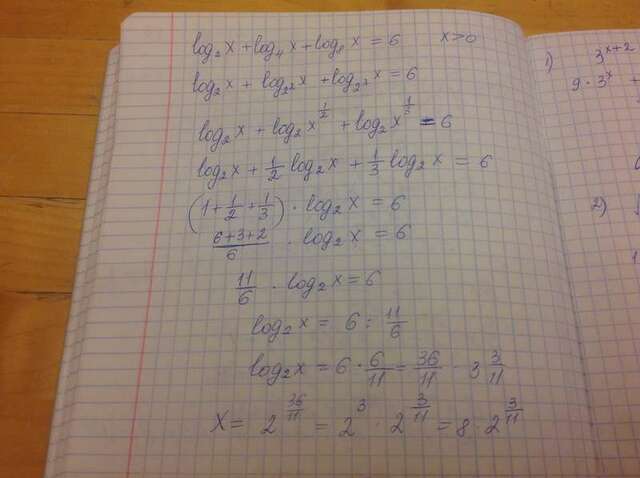 log₂x + log₄x + log₈x = 6 x>0
log₂x + log_{2²}x + log_{2³}x = 6
log₂x + log₂x^{1/2} + log₂x^{1/3} = 6
log₂x + 1/2 log₂x + 1/3 log₂x = 6
(1 + 1/2 + 1/3) · log₂x = 6
(6+3+2)/6 · log₂x = 6
11/6 · log₂x = 6
log₂x = 6 : 11/6
log₂x = 6 · 6/11 = 36/11 = 3 3/11
x = 2^{36/11} = 2³ · 2^{3/11} = 8 · 2^{3/11}
1) 3^{x+2}
9 · 3^x +
2)